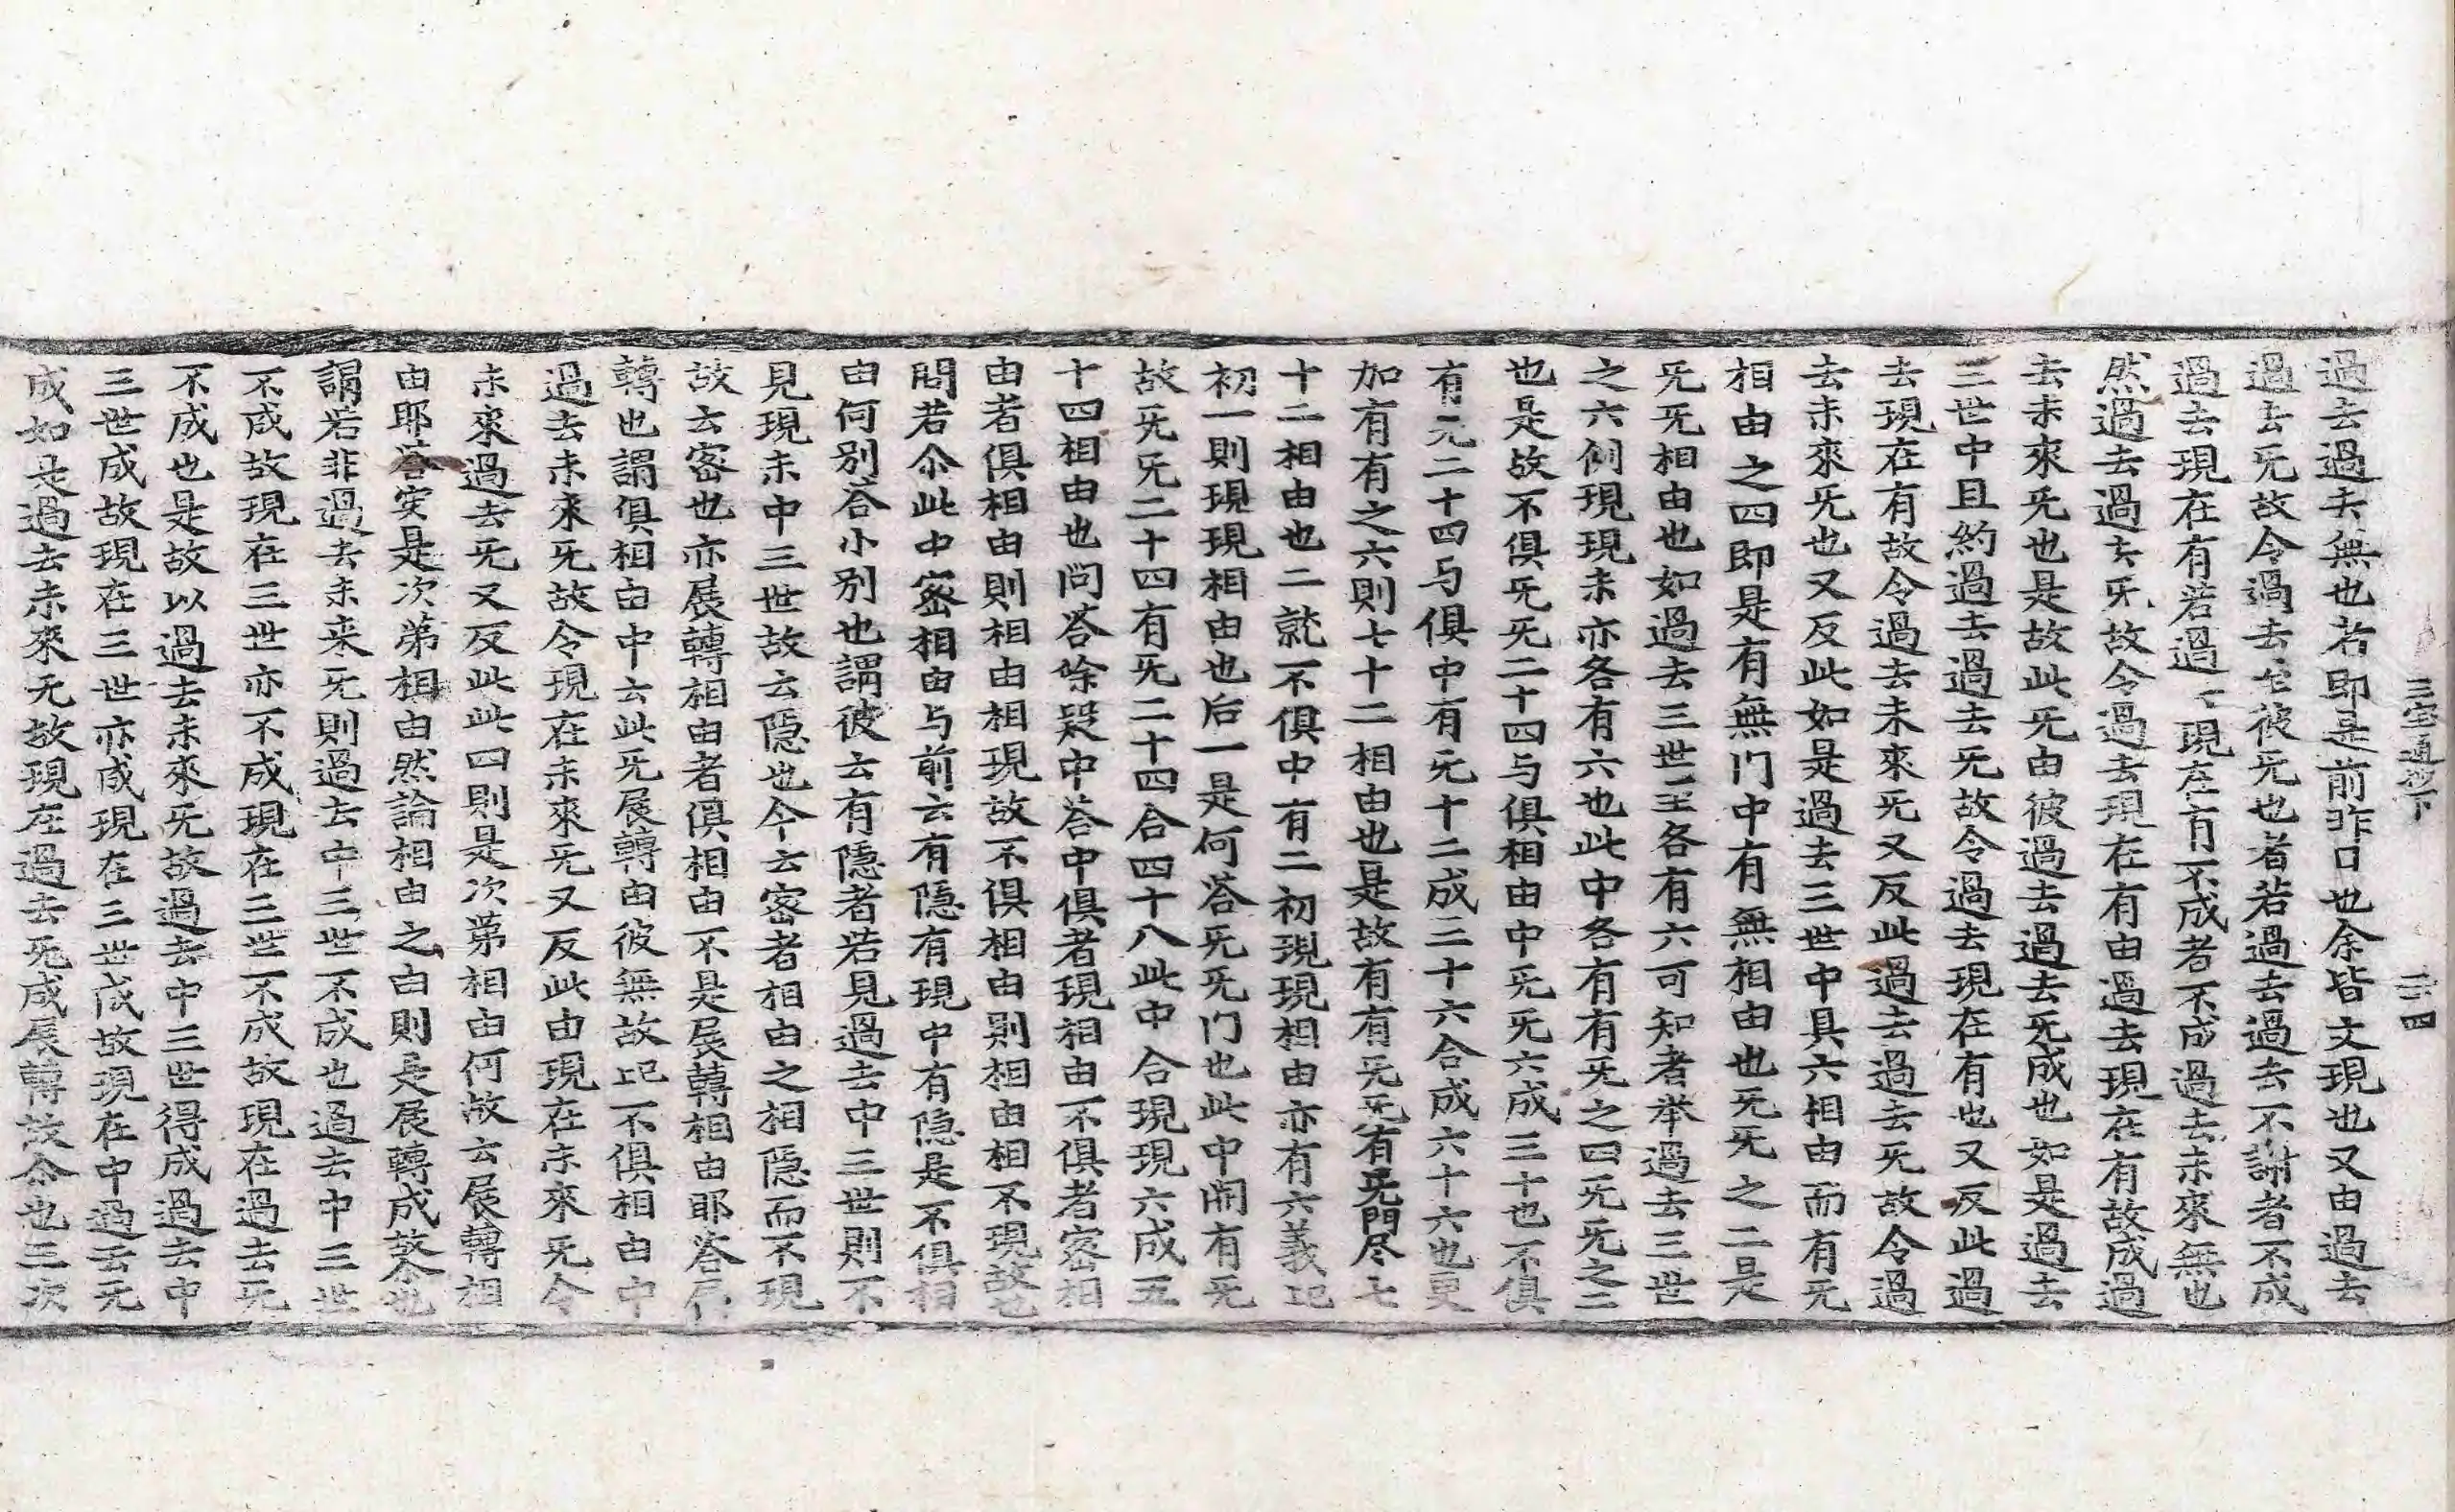 三宝 下 三四
過去過去無也若即是前昨日也余皆文現也又由過去
過去旡故令過去 彼旡也者若過去過去不謝者不成
過去現在有若過 現在有不成者不成過去未來無也
然過去過去旡故令過去現在有由過去現在有故成過
去未來旡也是故此旡由彼過去過去旡成也如是過去
三世中且約過去過去旡故令過去現在有也又反此過
去現在有故令過去未來旡又反此過去過去旡故令過
去未來旡也又反此如是過去三世中具六相由而有旡
相由之四即是有無门中有無相由也旡旡之二是
旡旡相由也如過去三世三各有六可知者举過去三世
之六例現現未亦各有六也此中各有有旡之四旡旡之二
也是故不俱旡旡二十四与俱相由中旡旡六成三十也不俱
有旡二十四与俱中有旡十二成三十六合成六十六也更
加有有之六則七十二相由也是故有有旡旡有旡門尽七
十二相由也二就不俱中有二初現現相由亦有六義記
初一則現現相由也后一是何荅旡旡门也此中開有旡
故旡旡二十四有旡二十四合四十八此中合現現六成五
十四相由也问荅除疑中荅中俱者現相由不俱者密相
由者俱相由則相由相現故不俱相由則相由相不現故也
問若尒此中密相由与前云有隠有現中有隠是不俱相
由何別荅小別也謂彼云有隠者若見過去中三世則不
見現未中三世故云隠也今云密者相由之相隠而不現
故云密也亦展轉相由者俱相由不是展轉相由耶荅展
轉也謂俱相由中云此旡展轉由彼無故記不俱相由中
過去未來旡故令現在未來旡又反此由現在未來旡令
未來過去旡又反此此四則是次第相由何故云展轉相
由耶荅実是次第相由然論相由之由則是展轉成故尒也
謂若非過去未来旡則過去中三世不成也過去中三世
不成故現在三世亦不成現在三世不成故現在過去旡
不成也是故以過去未來旡故過去中三世得成過去中
三世成故現在三世亦成現在三世成故現在中過去旡
成如是過去未來旡故現在過去旡成展轉故尒也三次